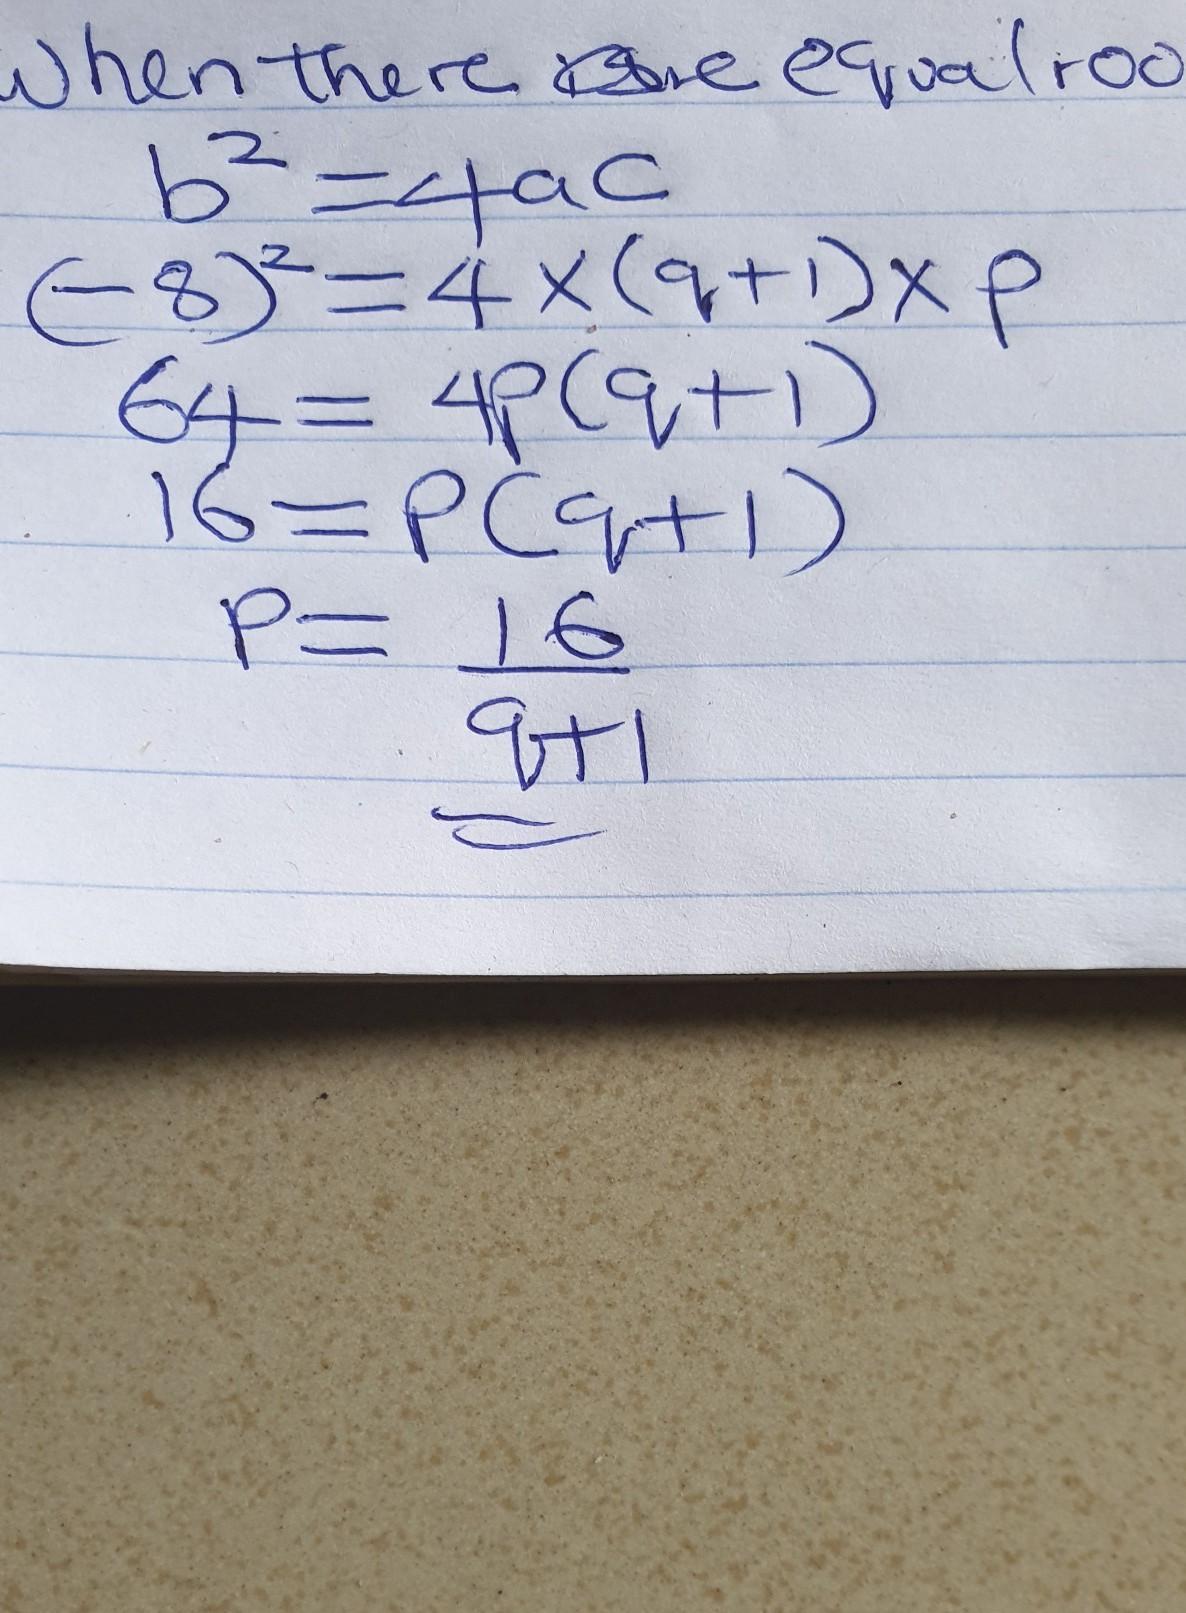 When there are equal roo
b² = 4ac
(-8)² = 4 × (q+1) × p
64 = 4p(q+1)
16 = p(q+1)
p = 16
q+1